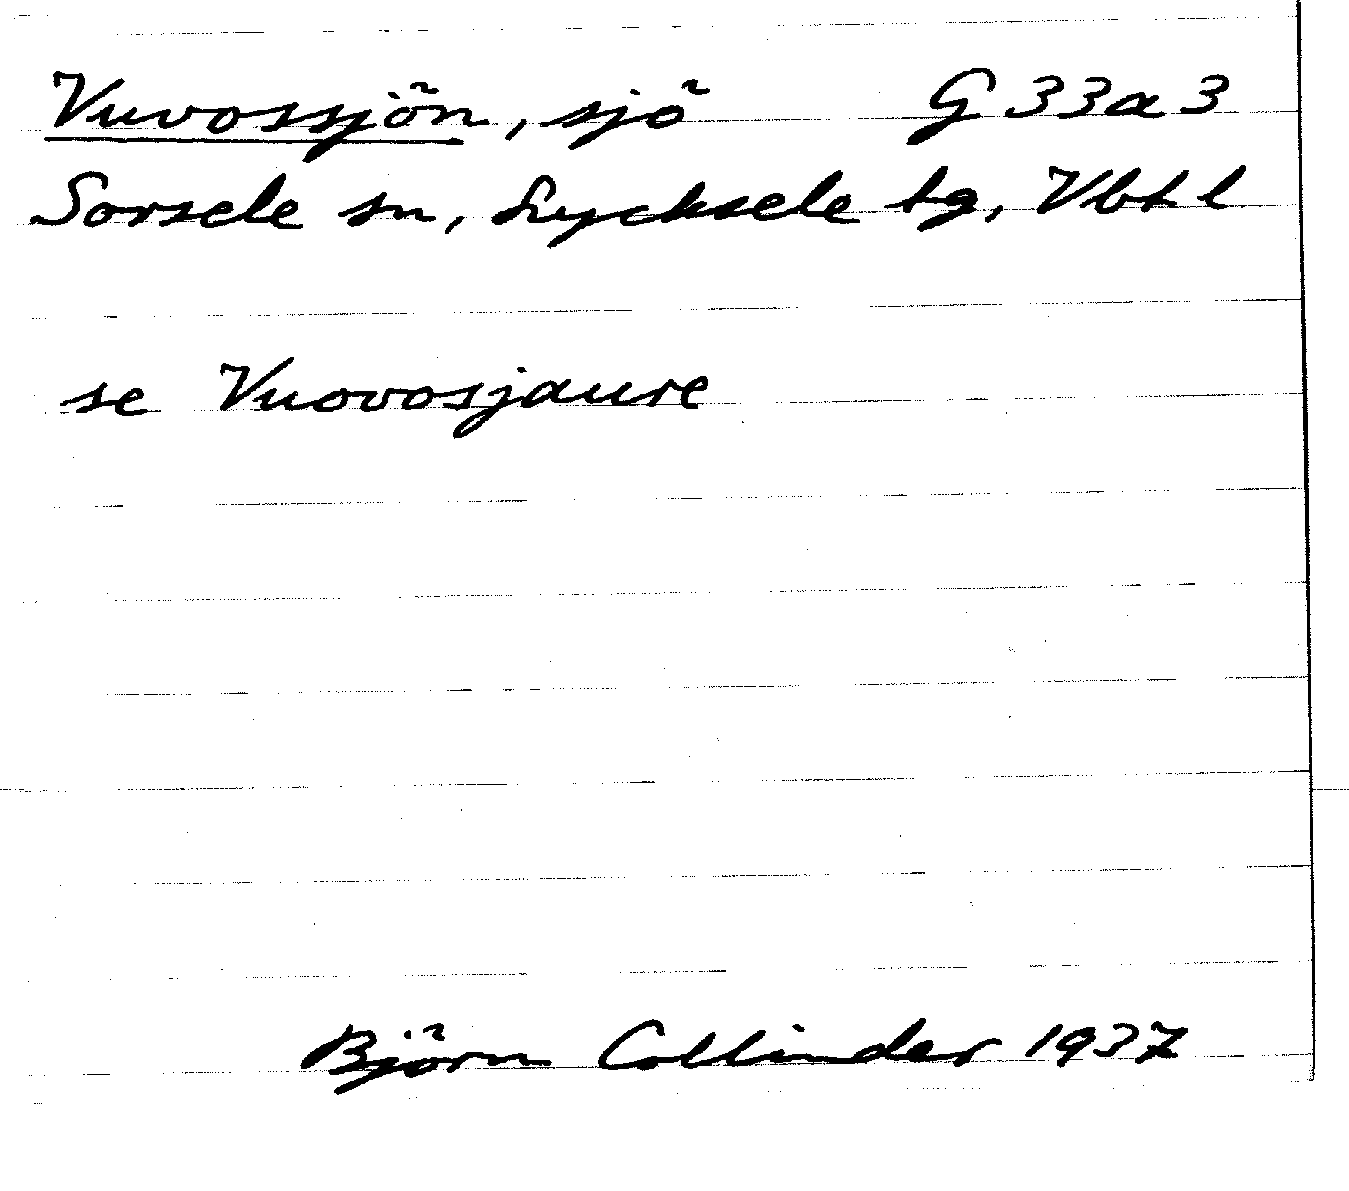 Vuvossjön, sjö G 33a3
Sorsele sn, Lycksele tg, Vbt l
se Vuovosjaure
Björn Collinder 1937